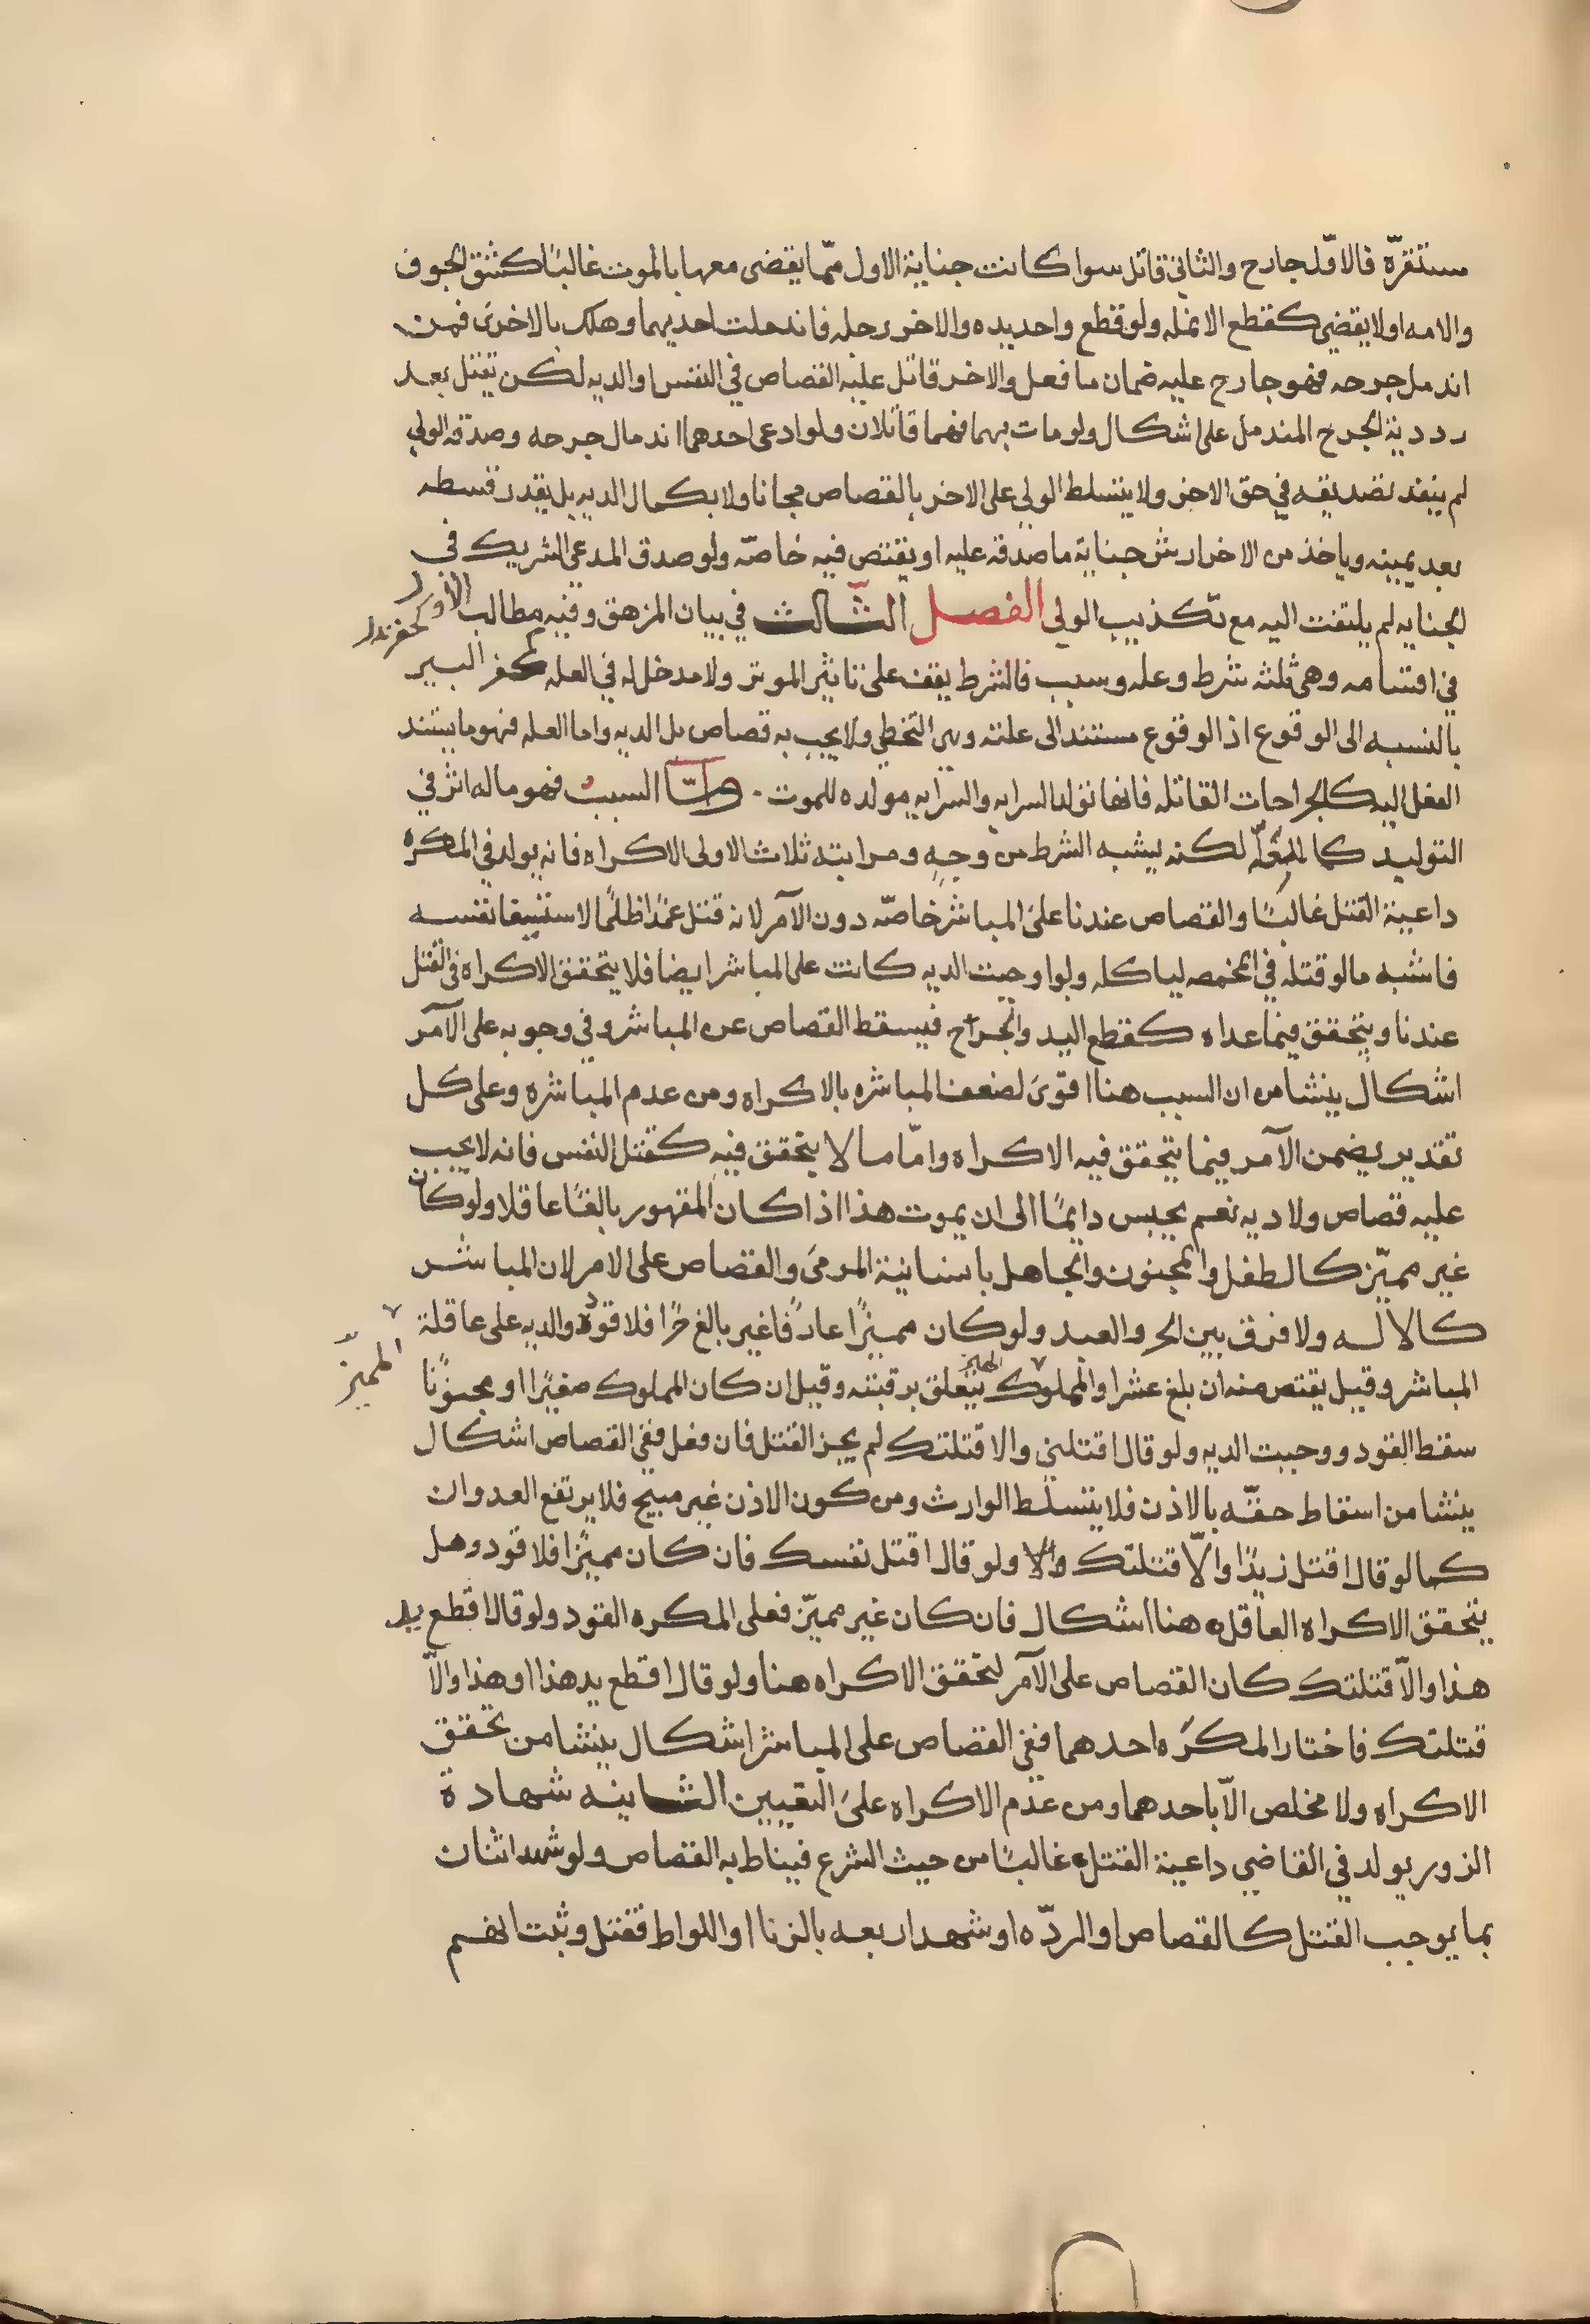 مستقرّه فالاوّل جارح والثانى قاتل سوا كانت جناية الاول ممّا يقضى معها بالموت غالبًا كشق الجوف
والامه اولا يقضى كقطع الانمله ولو قطع واحد يده والاخر رجله فاندملت احديهما وهلك بالاخرى فمن
اندمل جرحه فهو جارح عليه ضمان ما فعل والاخر قاتل عليه القصاص في النفس او الديه لكن يقتل بعد
رد دية الجرح المندمل على اشكال ولو مات بهما فهما قاتلان ولو ادعى احدهما اندمال جرحه وصدقه الولي
لم ينفذ تصديقه في حق الاخر ولا يتسلط الولى على الاخر بالقصاص مجانا ولا بكمال الديه بل بقدر قسطه
بعد يمينه وياخذ من الاخر ارش جناية ما صدقه عليه او يقتص فيه خاصّه ولو صدق المدعى الشريك فى
الجنايه لم يلتفت اليه مع تكذيب الولى الفصل الثّالث في بيان المزهق وفيه مطالب الاول
في اقسامه وهى ثلثه شرط وعله وسبب فالشرط يقف على تاثير الموثر ولا مدخل له في العله كحفر البير
بالنسبه الى الوقوع اذ الوقوع مستند الى علته وهى التخطي ولا يجب به قصاص بل الديه واما العله فهو ما يستند
الفعل اليه كالجراحات القاتله فانها تولد السرايه والسرايه مولده للموت . وامّا السبب فهو ماله اثر في
التوليد كما للعلّه لكنه يشبه الشرط من وجهٍ ومراتبه ثلاث الاولى الاكراه فانه يولد في المكره
داعية القتل غالبًا والقصاص عندنا على المباشر خاصّه دون الآمر لانه قتل عمدًا ظلمًا لاستبقا نفسه
فاشبه مالو قتله في المخمصه لياكله ولو اوجبت الديه كانت على المباشر ايضا فلا يتحقق الاكراه فى القتل
عندنا ويتحقق فيما عداه كقطع اليد والجراح فيسقط القصاص عن المباشر وفي وجوبه على الآمر
اشكال ينشا من ان السبب هنا اقوى لضعف المباشره بالاكراه ومن عدم المباشره وعلى كل
تقدير يضمن الآمر فيما يتحقق فيه الاكراه وامّا ما لا يتحقق فيه كقتل النفس فانه لا يجب
عليه قصاص ولا ديه نعم يحبس دايمًا الى ان يموت هذا اذا كان المقهور بالغًا عاقلا ولو كان
غير مميّز كالطفل والمجنون والجاهل بانسانية المرمى والقصاص على الامر لان المباشر
كالاله ولا فرق بين الحر والعبد ولو كان مميزًا عارفًا غير بالغ حرًا فلا قود والديه على عاقلة
المميّز
المباشر وقيل يقتص منه ان بلغ عشرا والمملوك المميز يتعلق برقبته وقيل ان كان المملوك صغيرًا او مجنونًا
سقط القود ووجبت الديه ولو قال اقتلني والا قتلتك لم يجز القتل فان فعل ففي القصاص اشكال
ينشا من اسقاط حقّه بالاذن فلا يتسلّط الوارث ومن كون الاذن غير مبيح فلا يرتفع العدوان
كما لو قال اقتل زيدًا والّا قتلتك ولو قال اقتل نفسك فان كان مميزًا فلا قود وهل
يتحقق الاكراه العاقل هنا اشكال فان كان غير مميّز فعلى المكره القود ولو قال اقطع يد
هذا والّا قتلتك كان القصاص على الآمر لتحقق الاكراه هنا ولو قال اقطع يد هذا او هذا والّا
قتلتك فاختار المكرَه احدهما ففي القصاص على المباشر اشكال ينشا من تحقق
الاكراه ولا مخلص الّا باحدهما ومن عدم الاكراه على التعيين الثانيه شهادة
الزور يولد في القاضي داعية القتل غالبًا من حيث الشرع فيناط به القصاص ولو شهد اثنان
بما يوجب القتل كالقصاص او الردّه او شهد اربعه بالزنا او اللواط فقتل وثبت انهم